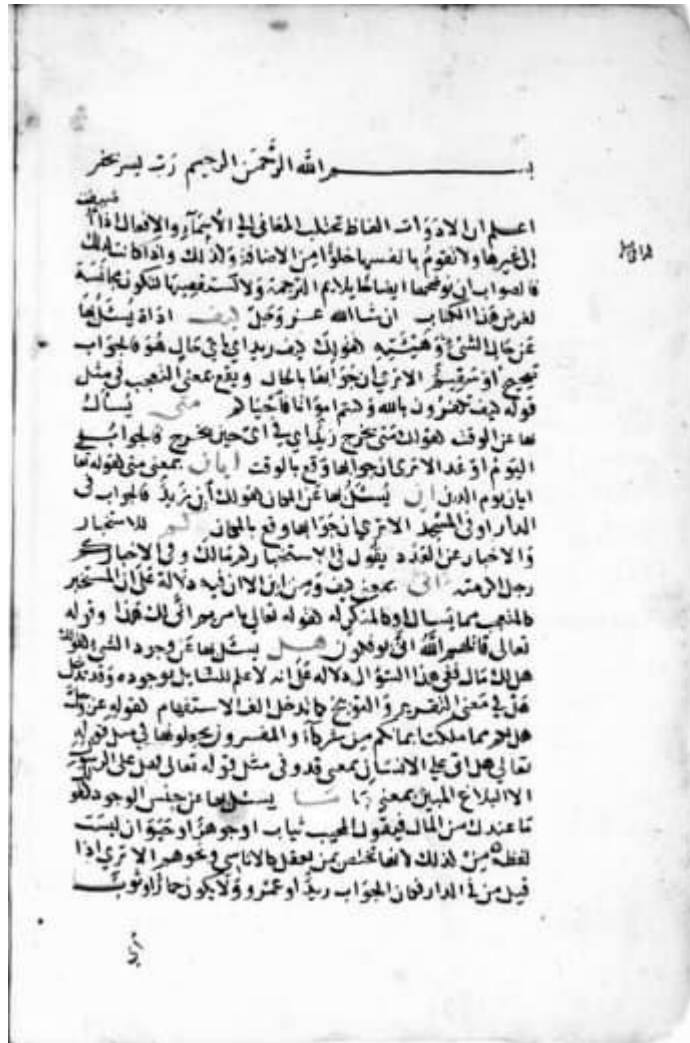 بسم الله الرحمن الرحيم رب يسر بخير
اعلم ان الادوات الفاظ تجلب المعاني في الأسماء والافعال اذا
إلى غيرها ولا تقوم بانفسها خلوًا من الاضافة ولذلك واذا كانت كذلك
فالصواب ان نوضحها ايضاحا يلايم الترجمة ولا نستقصيها لتكون مجانسة
لغرض هذا الكتاب ان شا الله عز وجل كيف اداة يسئل بها
عن حال الشئ وهيئته كقولك كيف زيد اي في اي حال هو فالجواب
صحيح او سقيم الا تري ان جوابها بالحال ويقع بمعنى التعجب في مثل
قوله كيف تكفرون بالله وكنتم امواتا فاحياكم متى يسأل
بها عن الوقت كقولك متى يخرج زيد اي في اى حين يخرج فالجواب
اليوم او غد الا ترى ان جوابها وقع بالوقت ايان بمعنى متى كقوله تعا
ايان يوم الدين اين يسئل بها عن المكان كقولك اين زيد فالجواب في
الدار او في المسجد الا تري ان جوابها وقع بالمكان كم للاستخبار
والاخبار عن العدد يقول في الاستخبار كم مالك وفي الاخبار كم
رجل اكرمته انى بمعنى كيف ومن اين الا ان فيه دلالة على ان المستخبر
كالمتعجب مما يسال او كالمنكر له كقوله تعالى يا مريم انى لك هذا وقوله
تعالى قاتلهم الله انى يوفكون هل يسئل بها عن وجود الشئ كقولك
هل لك مال ففى هذا السؤال دلاله على انه لا علم للسايل بوجوده وقد تدخل
هل في معنى التقرير والتوبيخ كما تدخل الف الاستفهام كقوله عز وجل
هل لكم مما ملكت ايمانكم من شركاء والمفسرون يجعلونها في مثل قوله
تعالى هل اتى على الانسان بمعنى قد وفى مثل قوله تعالى فهل على الرسل
الا البلاغ المبين بمعنى ما ما يسئل بها عن جنس الوجود كقو
ما عندك من المال فيقول المجيب ثياب او جوهر او حيوان ليست
لفظة من كذلك لانها تختص بمن يعقل كالاناسي ونحوهم الا تري اذا
قيل من في الدار فكان الجواب زيد او عمرو ولا يكون حمارًا او ثوبًا